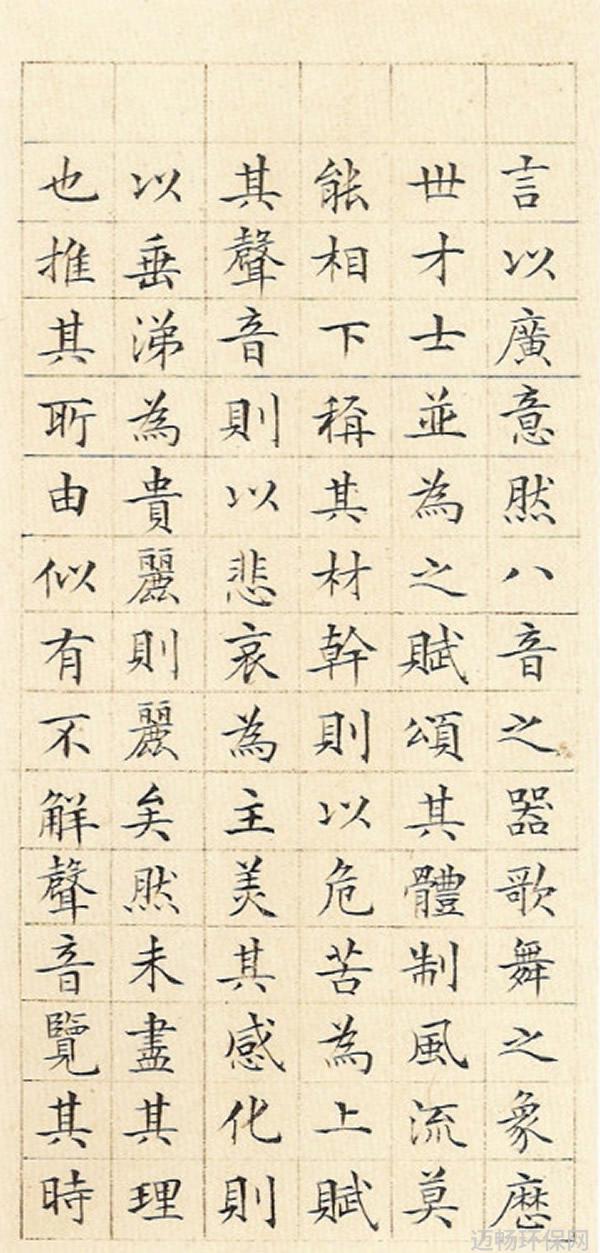 言以廣意然八音之器歌舞之象歷
世才士並為之賦頌其體制風流莫
能相下稱其材幹則以危苦為上賦
其聲音則以悲哀為主美其感化則
以垂涕為貴麗則麗矣然未盡其理
也推其所由似有不解聲音覽其時
迈畅环保网